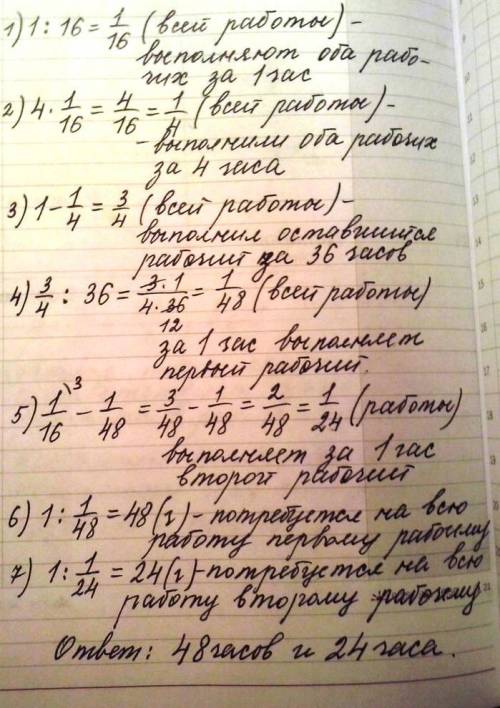 1) 1 : 16 = 1/16 (всей работы) -
выполняют оба рабо-
чих за 1 час
2) 4 · 1/16 = 4/16 = 1/4 (всей работы) -
- выполнили оба рабочих
за 4 часа
3) 1 - 1/4 = 3/4 (всей работы) -
выполнил оставшийся
рабочий за 36 часов
4) 3/4 : 36 = 3·1/4·36 = 1/48 (всей работы)
12
за 1 час выполняет
первый рабочий.
5) 1/16 \3 - 1/48 = 3/48 - 1/48 = 2/48 = 1/24 (работы)
выполняет за 1 час
второй рабочий
6) 1 : 1/48 = 48 (ч) - потребуется на всю
работу первому рабочему
7) 1 : 1/24 = 24 (ч) - потребуется на всю
работу второму рабочему
Ответ: 48 часов и 24 часа.